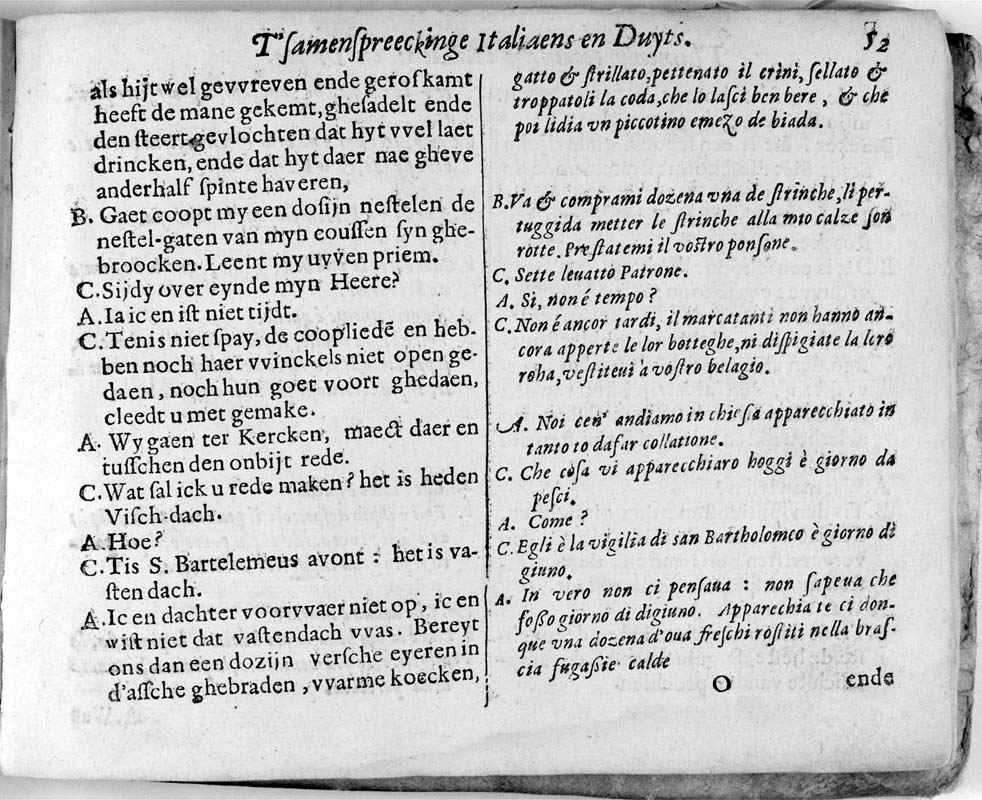 T'samenspreeckinge Italiaens en Duyts.
52
als hijt wel gevvreven ende gerofkamt
heeft de mane gekemt, ghesadelt ende
den steert gevlochten dat hyt vvel laet
drincken, ende dat hyt daer nae gheve
anderhalf spinte haveren,
B. Gaet coopt my een dosijn nestelen de
nestel-gaten van myn coussen syn ghe-
broocken. Leent my uyven priem.
C. Sijdy over eynde myn Heere?
A. Ia ic en ist niet tijdt.
C. Tenis niet spay, de coopliedē en heb-
ben noch haer vvinckels niet open ge-
daen, noch hun goet voort ghedaen,
cleedt u met gemake.
A. Wy gaen ter Kercken, maect daer en
tusschen den onbijt rede.
C. Wat sal ick u rede maken? het is heden
Visch-dach.
A. Hoe?
C. Tis S. Bartelemeus avont: het is va-
sten dach.
A. Ic en dachter voorvvaer niet op, ic en
wist niet dat vastendach vvas. Bereyt
ons dan een dozijn versche eyeren in
d'assche ghebraden, vvarme koecken,
gatto & strillato, pettenato il crini, sellato &
troppatoli la coda, che lo lasci ben bere, & che
poi lidia vn piccotino emezo de biada.
B. Va & comprami dozena vna de strinche, li per-
tuggida metter le strinche alla mio calze son
rotte. Prestatemi il vostro ponsone.
C. Sette leuatto Patrone.
A. Si, non é tempo?
C. Non é ancor tardi, il marcatanti non hanno an-
cora apperte le lor botteghe, ni dispigiate la loro
roha, vestiteui à vostro belagio.
A. Noi cen' andiamo in chiesa apparecchiato in
tanto to dafar collatione.
C. Che cosa vi apparecchiaro hoggi è giorno da
pesci.
A. Come?
C. Egli è la vigilia di san Bartholomeo è giorno di
giuno.
A. In vero non ci pensaua: non sapeua che
fosso giorno di digiuno. Apparecchia te ci don-
que vna dozena d'oua freschi rostiti nella bras-
cia fugassie calde
O
ende